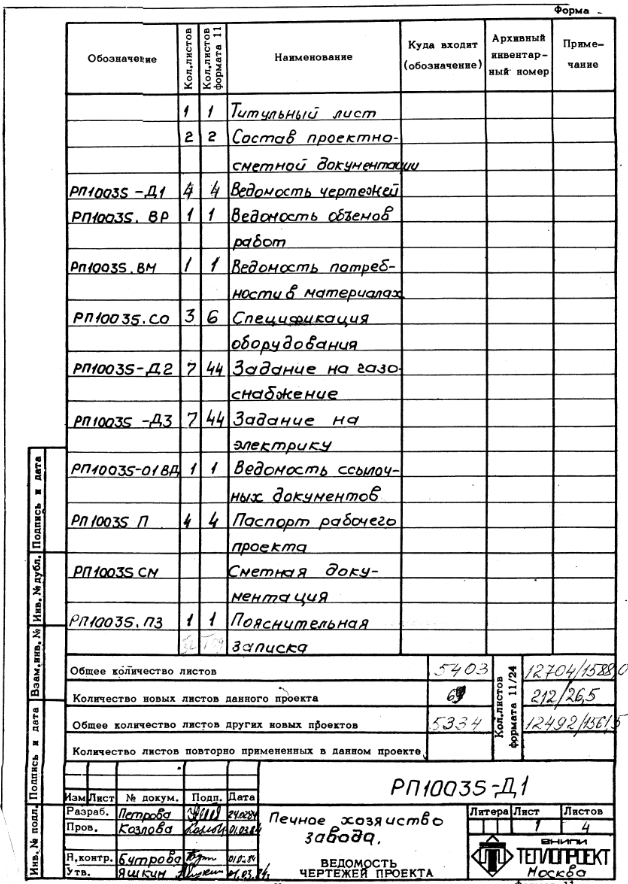 Форма
Обозначение Кол.листов Кол.листов формата 11 Наименование Куда входит (обозначение) Архивный инвентарный номер Примечание
1 1 Титульный лист
2 2 Состав проектно-
сметной документации
РП10035-Д1 4 4 Ведомость чертежей
РП10035. ВР 1 1 Ведомость объемов
работ
РП10035. ВМ 1 1 Ведомость потреб-
ности в материалах
РП10035. СО 3 6 Спецификация
оборудования
РП10035-Д2 7 44 Задание на газо-
снабжение
РП10035-Д3 7 44 Задание на
электрику
РП10035-01ВД 1 1 Ведомость ссылоч-
ных документов
РП10035 П 4 4 Паспорт рабочего
проекта
РП10035 СМ Сметная доку-
ментация
РП10035. ПЗ 1 1 Пояснительная
записка
Общее количество листов 5403 Кол.листов формата 11/24 12704/1588,0
Количество новых листов данного проекта 69 212/26,5
Общее количество листов других новых проектов 5334 12492/1561,5
Количество листов повторно примененных в данном проекте
Инв. № подл. Подпись и дата Взам.инв. № Инв. № дубл. Подпись и дата
РП10035-Д1
Изм Лист № докум. Подп. Дата
Разраб. Петрова
Пров. Козлова 01.03.84
Н.контр. Бутрова
Утв. Яшкин 01.03.84
Печное хозяйство
завода.
ВЕДОМОСТЬ
ЧЕРТЕЖЕЙ ПРОЕКТА
Литера Лист Листов
1 4
ВНИПИ
ТЕПЛОПРОЕКТ
Москва